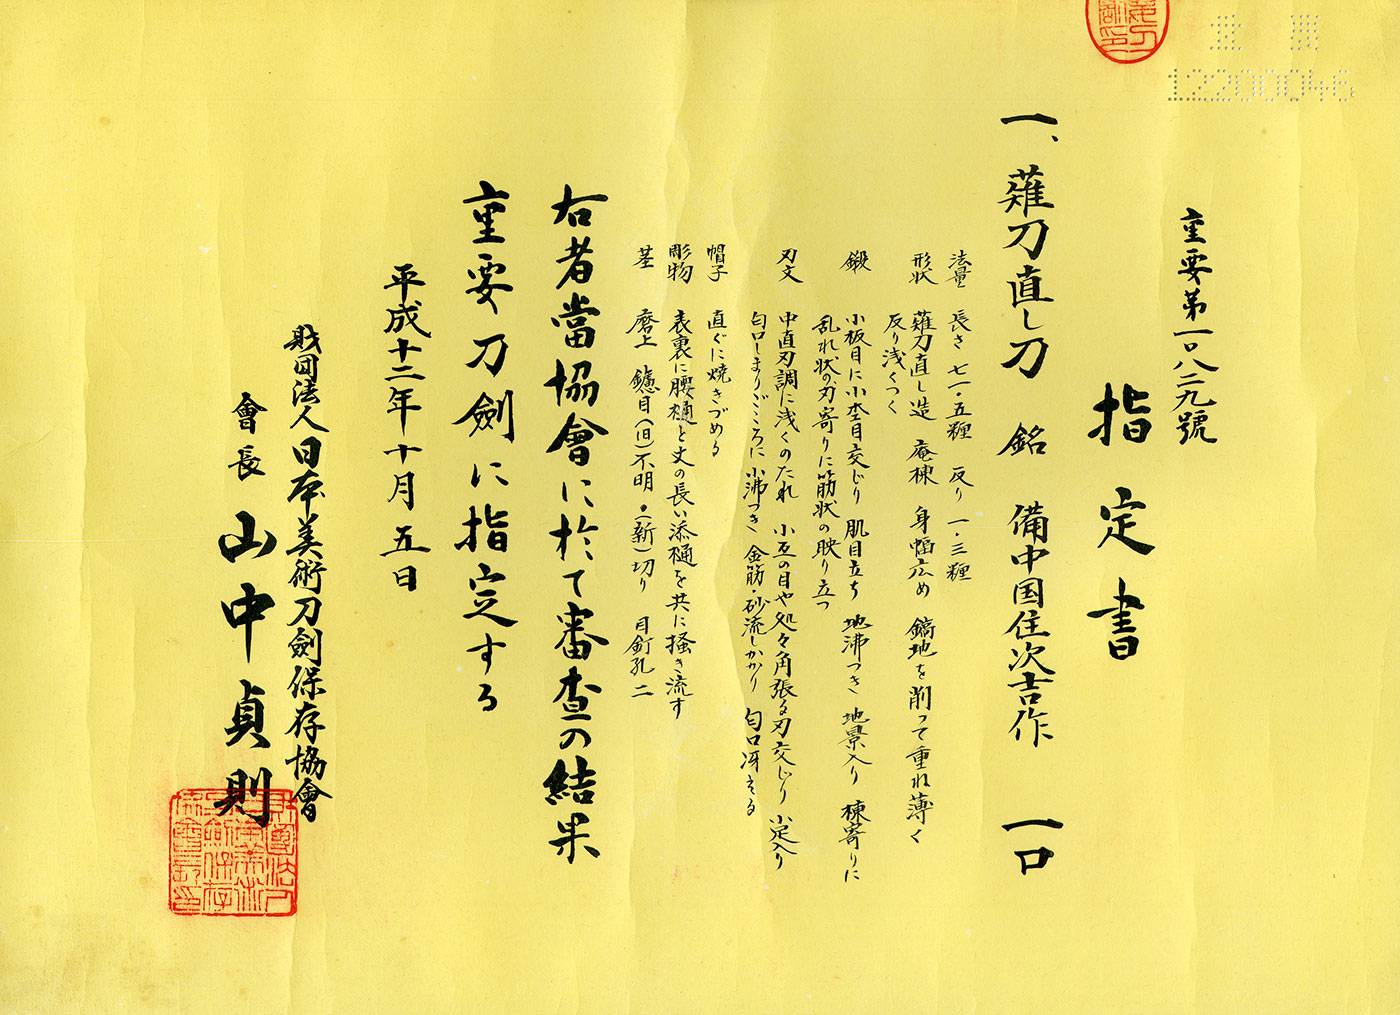 重要
12200046
重要第一〇八二九號
指定書
一、薙刀直し刀　銘　備中国住次吉作　一口
法量　長さ 七一・五糎　反り 一・三糎
形状　薙刀直し造　庵棟　身幅広め　鎬地を削って重ね薄く
反り浅くつく
鍛　小板目に小杢目交じり　肌目立ち　地沸つき　地景入り　棟寄りに
乱れ状の、刃寄りに筋状の映り立つ
刃文　中直刃調に浅くのたれ　小互の目や処々角張る刃交じり　小足入り
匂口しまりごころに小沸つき　金筋・砂流しかかり　匂口冴える
帽子　直ぐに焼きづめる
彫物　表裏に腰樋と丈の長い添樋を共に掻き流す
茎　磨上　鑢目(旧)不明・(新)切り　目釘孔二
右者當協會に於て審査の結果
重要刀劍に指定する
平成十二年十月五日
財団法人日本美術刀劍保存協會
會長　山中貞則